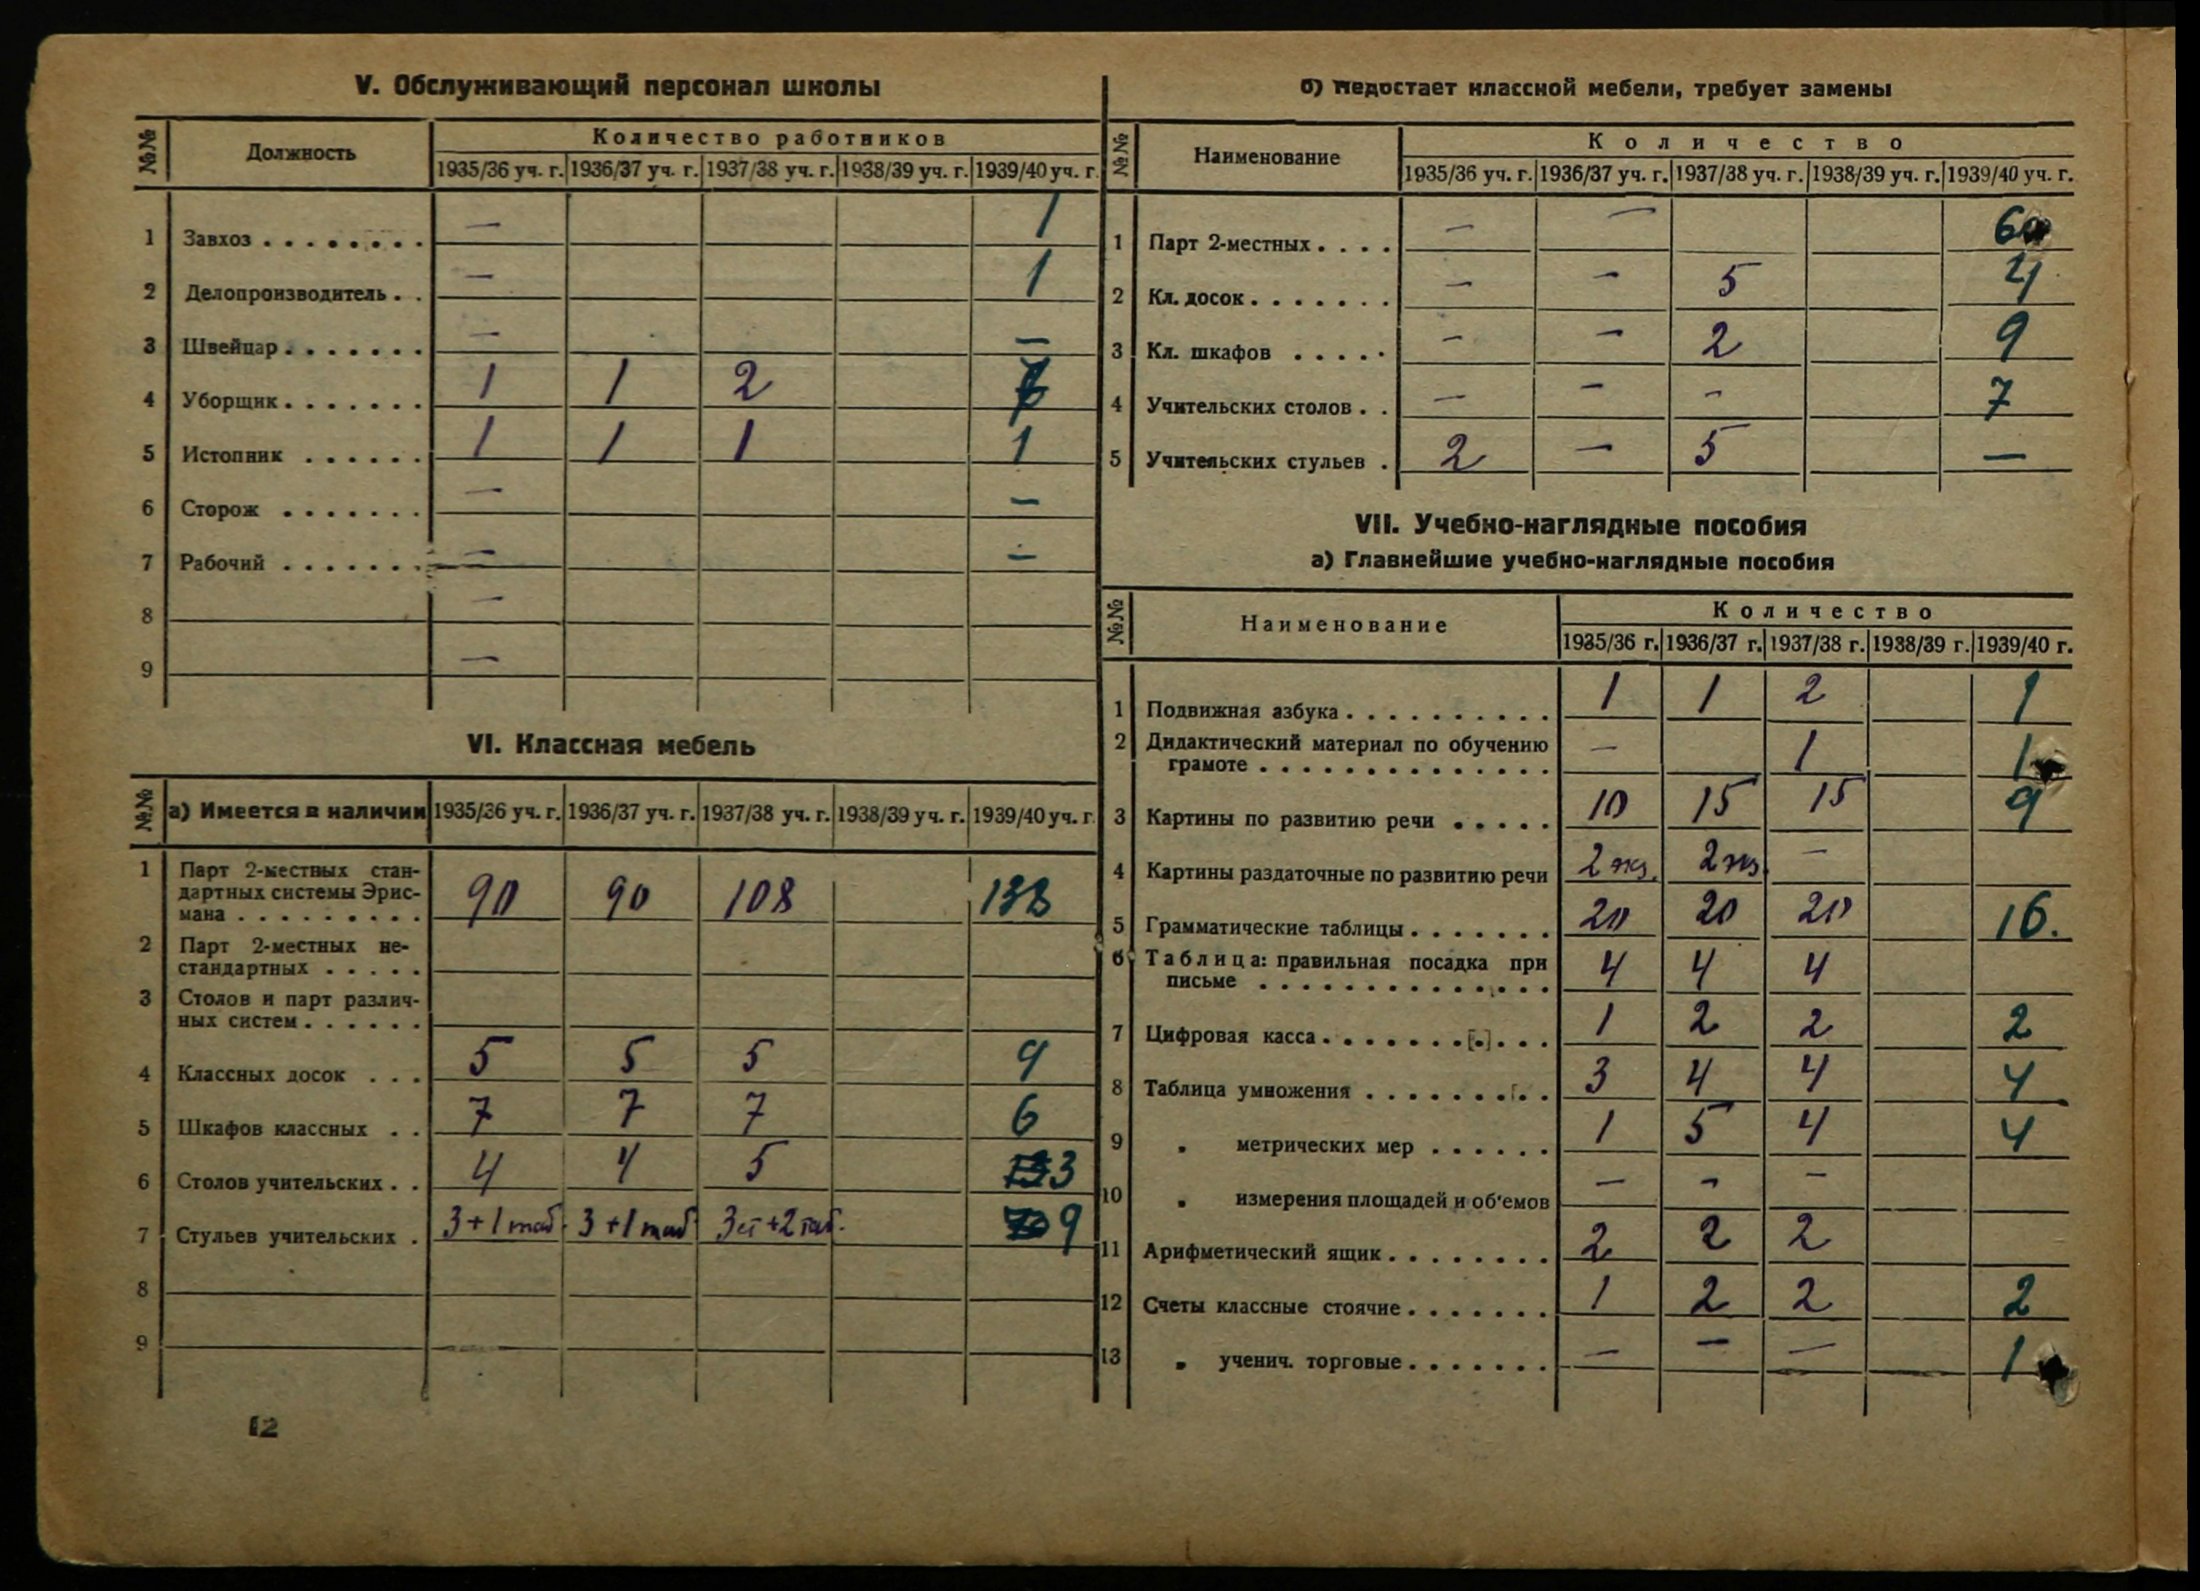 V. Обслуживающий персонал школы
№№ Должность Количество работников
1935/36 уч. г. 1936/37 уч. г. 1937/38 уч. г. 1938/39 уч. г. 1939/40 уч. г.
1 Завхоз . . . . . . . . — 1
2 Делопроизводитель . . — 1
3 Швейцар . . . . . . . — —
4 Уборщик . . . . . . . 1 1 2
5 Истопник . . . . . . 1 1 1 1
6 Сторож . . . . . . . — —
7 Рабочий . . . . . . . — —
8 —
9 —
VI. Классная мебель
№№ а) Имеется в наличии 1935/36 уч. г. 1936/37 уч. г. 1937/38 уч. г. 1938/39 уч. г. 1939/40 уч. г.
1 Парт 2-местных стан-
дартных системы Эрис-
мана . . . . . . . . . 90 90 108 138
2 Парт 2-местных не-
стандартных . . . . .
3 Столов и парт различ-
ных систем . . . . . .
4 Классных досок . . . 5 5 5 9
5 Шкафов классных . . 7 7 7 6
6 Столов учительских . . 4 4 5 3
7 Стульев учительских . 3+1 таб. 3+1 таб 3ст+2 таб. 9
8
9
12
б) Недостает классной мебели, требует замены
№№ Наименование Количество
1935/36 уч. г. 1936/37 уч. г. 1937/38 уч. г. 1938/39 уч. г. 1939/40 уч. г.
1 Парт 2-местных . . . . — — 60
2 Кл. досок . . . . . . . — — 5 4
3 Кл. шкафов . . . . . — — 2 9
4 Учительских столов . . — — — 7
5 Учительских стульев . 2 — 5 —
VII. Учебно-наглядные пособия
а) Главнейшие учебно-наглядные пособия
№№ Наименование Количество
1935/36 г. 1936/37 г. 1937/38 г. 1938/39 г. 1939/40 г.
1 Подвижная азбука . . . . . . . . . . 1 1 2 1
2 Дидактический материал по обучению
грамоте . . . . . . . . . . . . . . — 1 1
3 Картины по развитию речи . . . . . 10 15 15 9
4 Картины раздаточные по развитию речи 2 экз. 2 экз. —
5 Грамматические таблицы . . . . . . . 20 20 20 16.
6 Таблица: правильная посадка при
письме . . . . . . . . . . . . . . 4 4 4
7 Цифровая касса . . . . . . . . . . . 1 2 2 2
8 Таблица умножения . . . . . . . . . 3 4 4 4
9 „ метрических мер . . . . . . 1 5 4 4
10 „ измерения площадей и об'емов — — —
11 Арифметический ящик . . . . . . . . 2 2 2
12 Счеты классные стоячие . . . . . . . 1 2 2 2
13 „ ученич. торговые . . . . . . . — — — 1